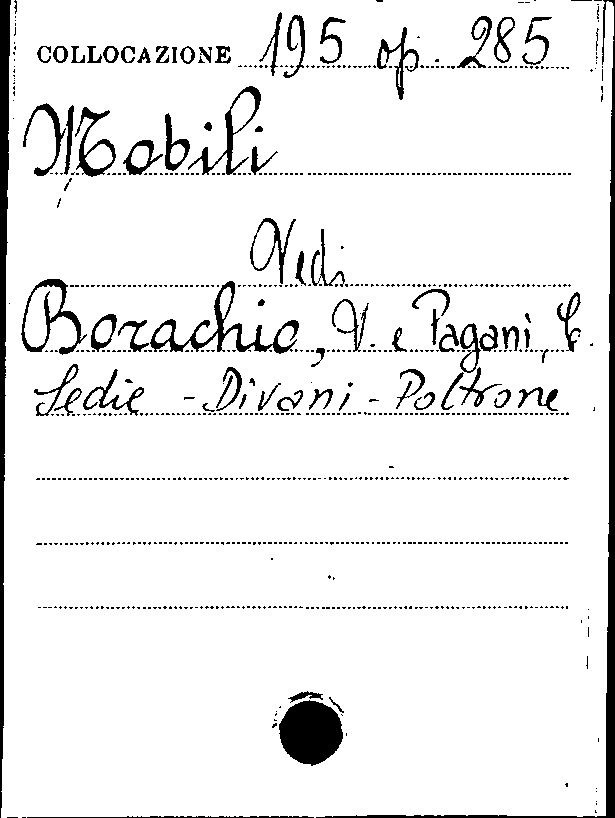 COLLOCAZIONE 195 op. 285
Mobili
Vedi
Borachio, V. e Pagani, C.
Sedie - Divani - Poltrone